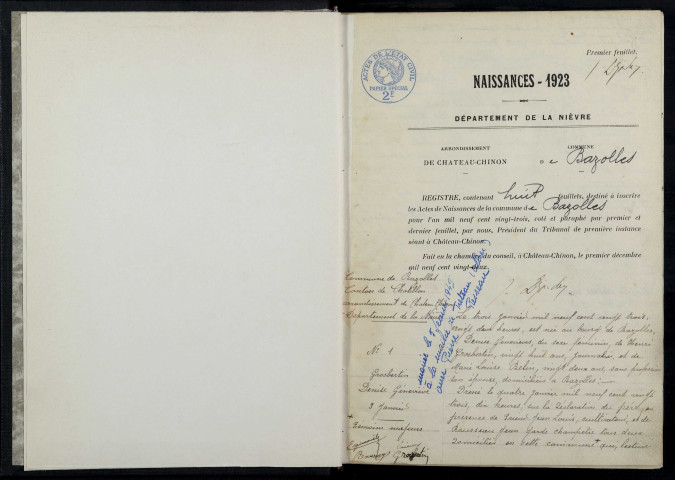 Premier feuillet.
ACTES DE L'ÉTAT CIVIL
PAPIER SPÉCIAL
2F
NAISSANCES - 1923
DÉPARTEMENT DE LA NIÈVRE
ARRONDISSEMENT
DE CHATEAU-CHINON
COMMUNE
De Bazolles
REGISTRE, contenant huit feuillets, destiné à inscrire
les Actes de Naissances de la commune de Bazolles
pour l'an mil neuf cent vingt-trois, coté et paraphé par premier et
dernier feuillet, par nous, Président du Tribunal de première instance
séant à Château-Chinon.
Fait en la chambre du conseil, à Château-Chinon, le premier décembre
mil neuf cent vingt-deux.
Commune de Bazolles
Canton de Chatillon
arrondissement de Château-Chinon
Département de la Nièvre
N° 1
Grosbertin
Denise Geneviève
3 Janvier
+ témoins majeurs
Le trois janvier mil neuf cent vingt trois,
heures, est née au bourg de Bazolles,
Denise Geneviève, du sexe féminin, de Henri
Grosbertin, vingt huit ans, journalier, et de
Marie Louise, vingt deux ans, sans profession
son épouse, domiciliés à Bazolles. —
Dressé le quatre janvier mil neuf cent vingt
trois, dix heures, sur la déclaration du père, en
présence de Jean Louis, cultivateur, et de
Rousseau Jean garde champêtre tous deux
domiciliés en cette commune + qui, lecture
mariée le 5
à la mairie de
avec Pierre